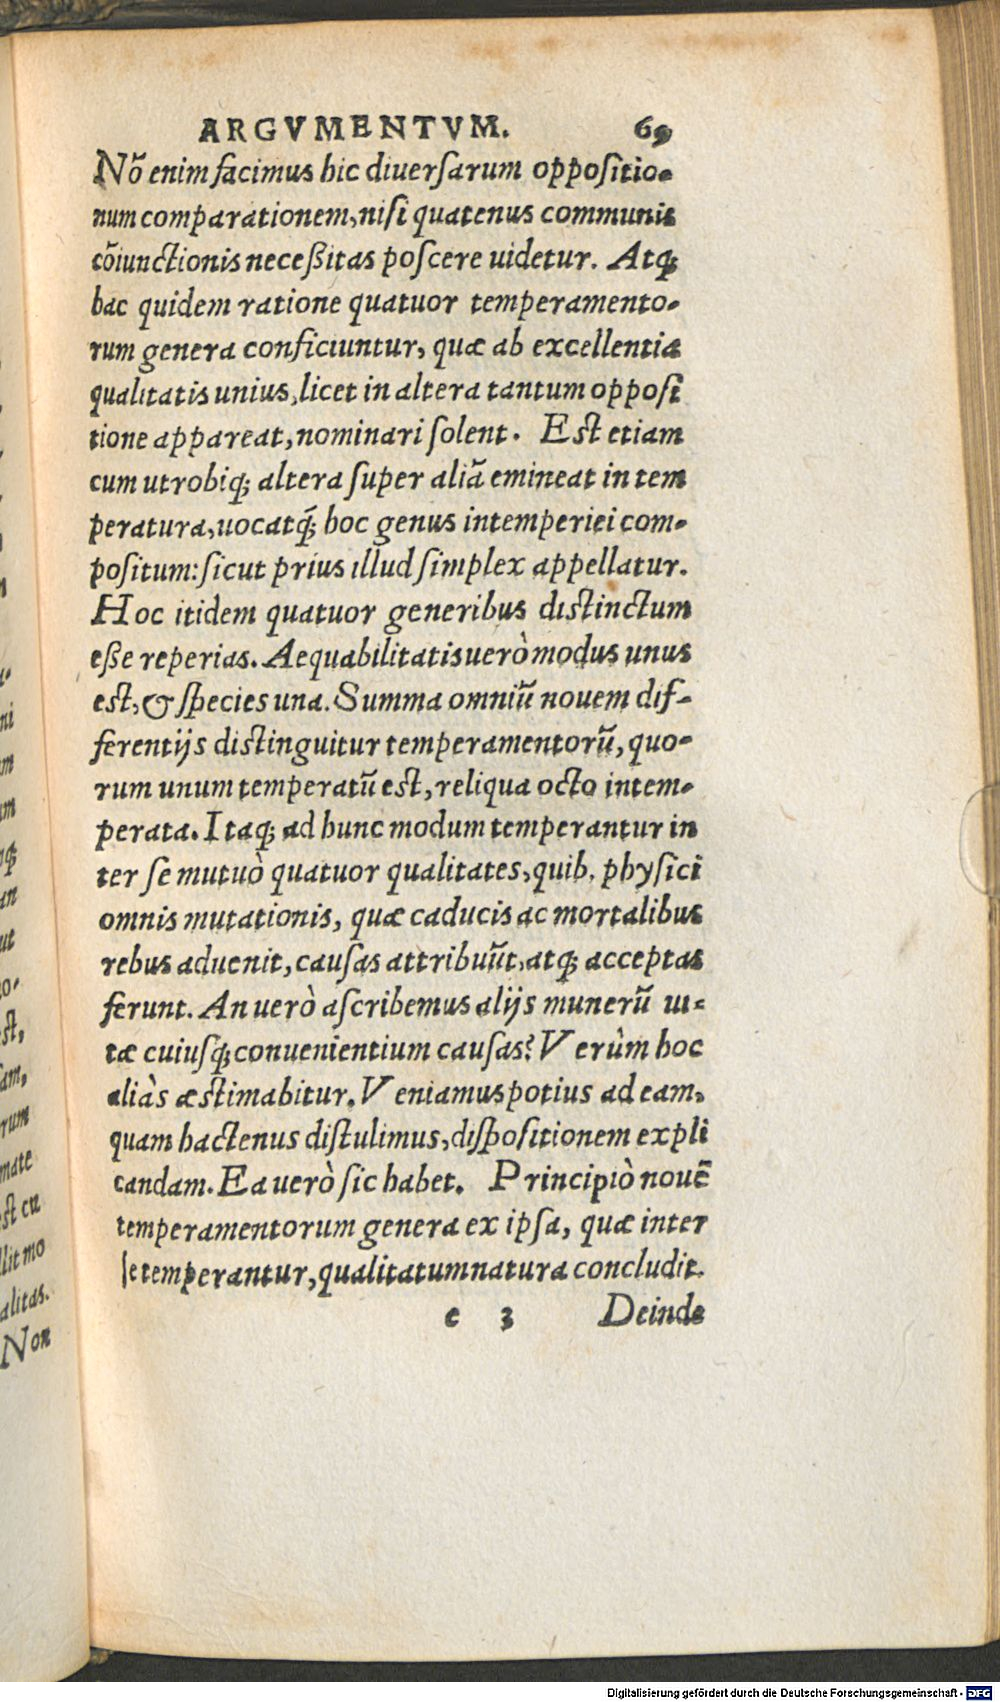 ARGVMENTVM. 69
Nõ enim facimus hic diuersarum oppositio-
num comparationem, nisi quatenus communis
cõiunctionis neceßitas poscere uidetur. Atq;
hac quidem ratione quatuor temperamento-
rum genera conficiuntur, quæ ab excellentia
qualitatis unius, licet in altera tantum opposi
tione appareat, nominari solent. Est etiam
cum utrobiq; altera super aliã emineat in tem
peratura, uocatq́; hoc genus intemperiei com-
positum: sicut prius illud simplex appellatur.
Hoc itidem quatuor generibus distinctum
eße reperias. Aequabilitatis uerò modus unus
est, & species una. Summa omniũ nouem dif-
ferentijs distinguitur temperamentorũ, quo-
rum unum temperatũ est, reliqua octo intem-
perata. Itaq; ad hunc modum temperantur in
ter se mutuò quatuor qualitates, quib. physici
omnis mutationis, quæ caducis ac mortalibus
rebus aduenit, causas attribuũt, atq; acceptas
ferunt. An uerò ascribemus alijs munerũ ui-
tæ cuiusq; conuenientium causas? Verùm hoc
aliàs æstimabitur. Veniamus potius ad eam,
quam hactenus distulimus, dispositionem expli
candam. Ea uerò sic habet. Principiò nouẽ
temperamentorum genera ex ipsa, quæ inter
se temperantur, qualitatum natura concludit.
e 3 Deinde
ni
m
um
q;
an
ut
o-
st,
am,
rum
mate
st cu
llit mo
alitas.
Non
Digitalisierung gefördert durch die Deutsche Forschungsgemeinschaft - DFG